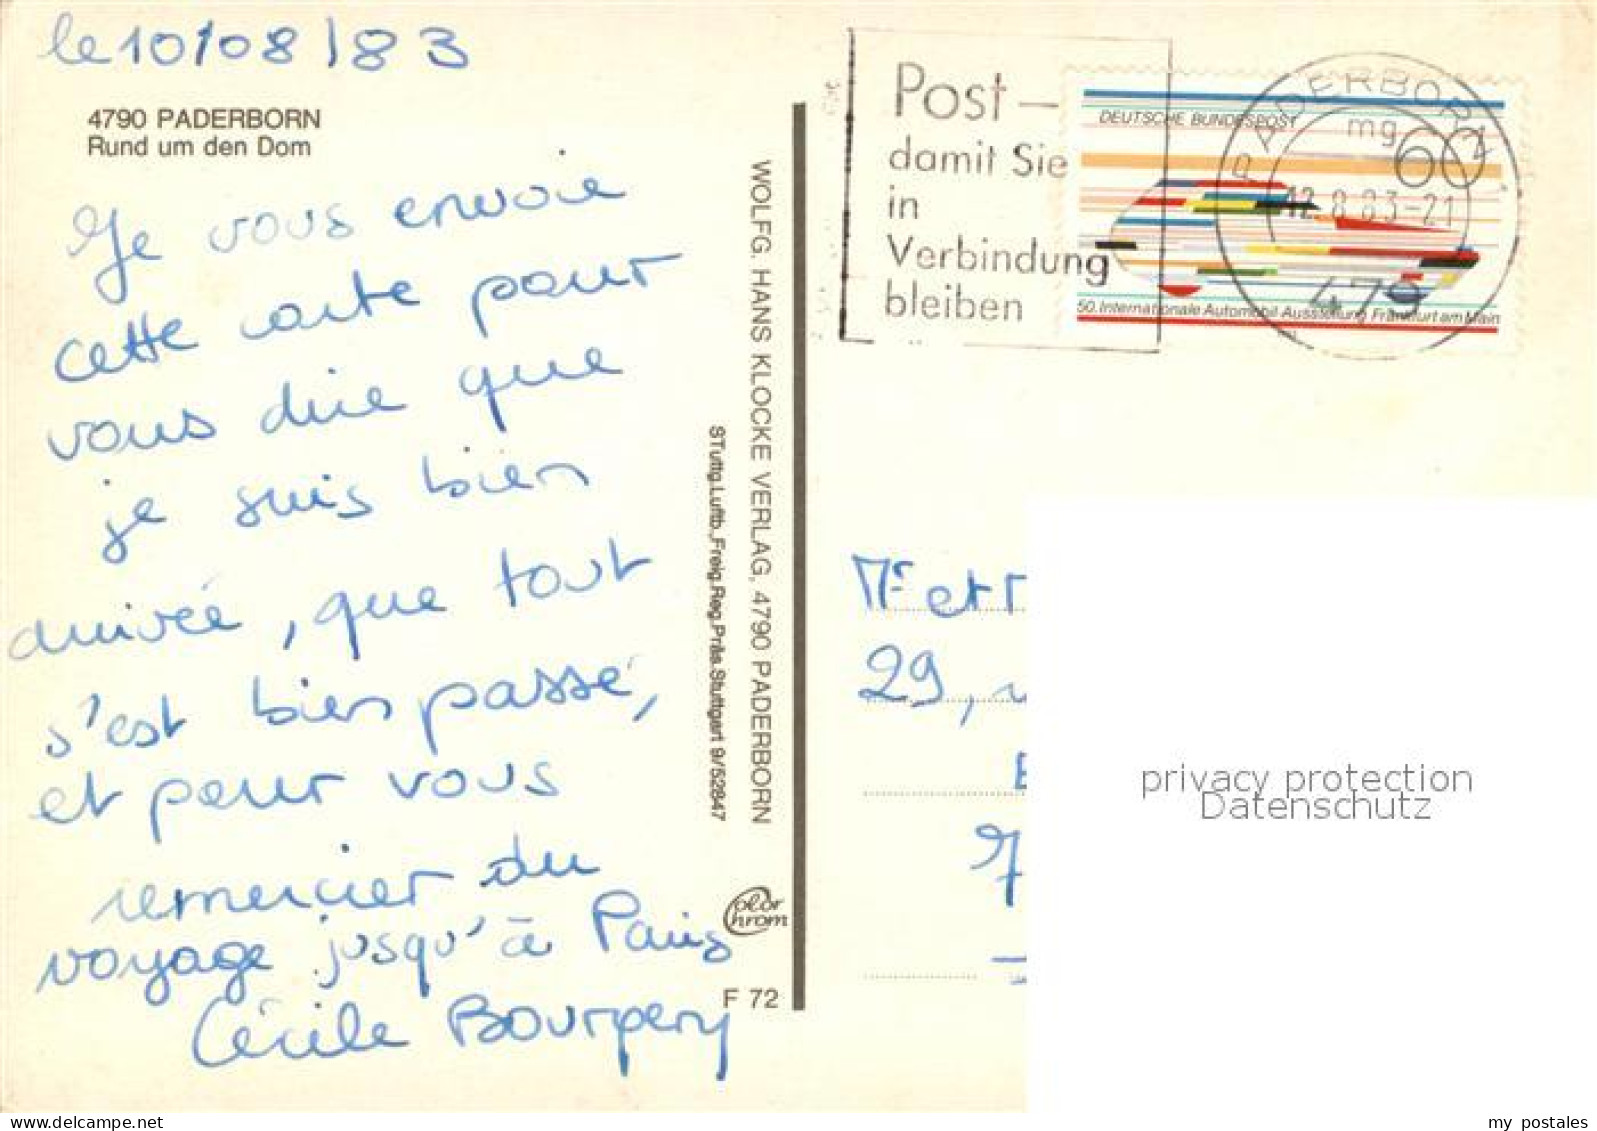 le 10/08/83
4790 PADERBORN
Rund um den Dom
Je vous envoie
cette carte pour
vous dire que
je suis bien
arrivée, que tout
s'est bien passé,
et pour vous
remercier du
voyage jusqu'à Paris
Cécile Bourpery
WOLFG. HANS KLOCKE VERLAG, 4790 PADERBORN
STuttg.Luftb.,Freig.Reg.Präs.Stuttgart 9/52847
Color Chrom
F 72
Post –
damit Sie
in
Verbindung
bleiben
DEUTSCHE BUNDESPOST
60
50. Internationale Automobil-Ausstellung Frankfurt am Main
PADERBORN 1
mg
12.8.83-21
479
Mr et
29,
7
privacy protection
Datenschutz
my postales